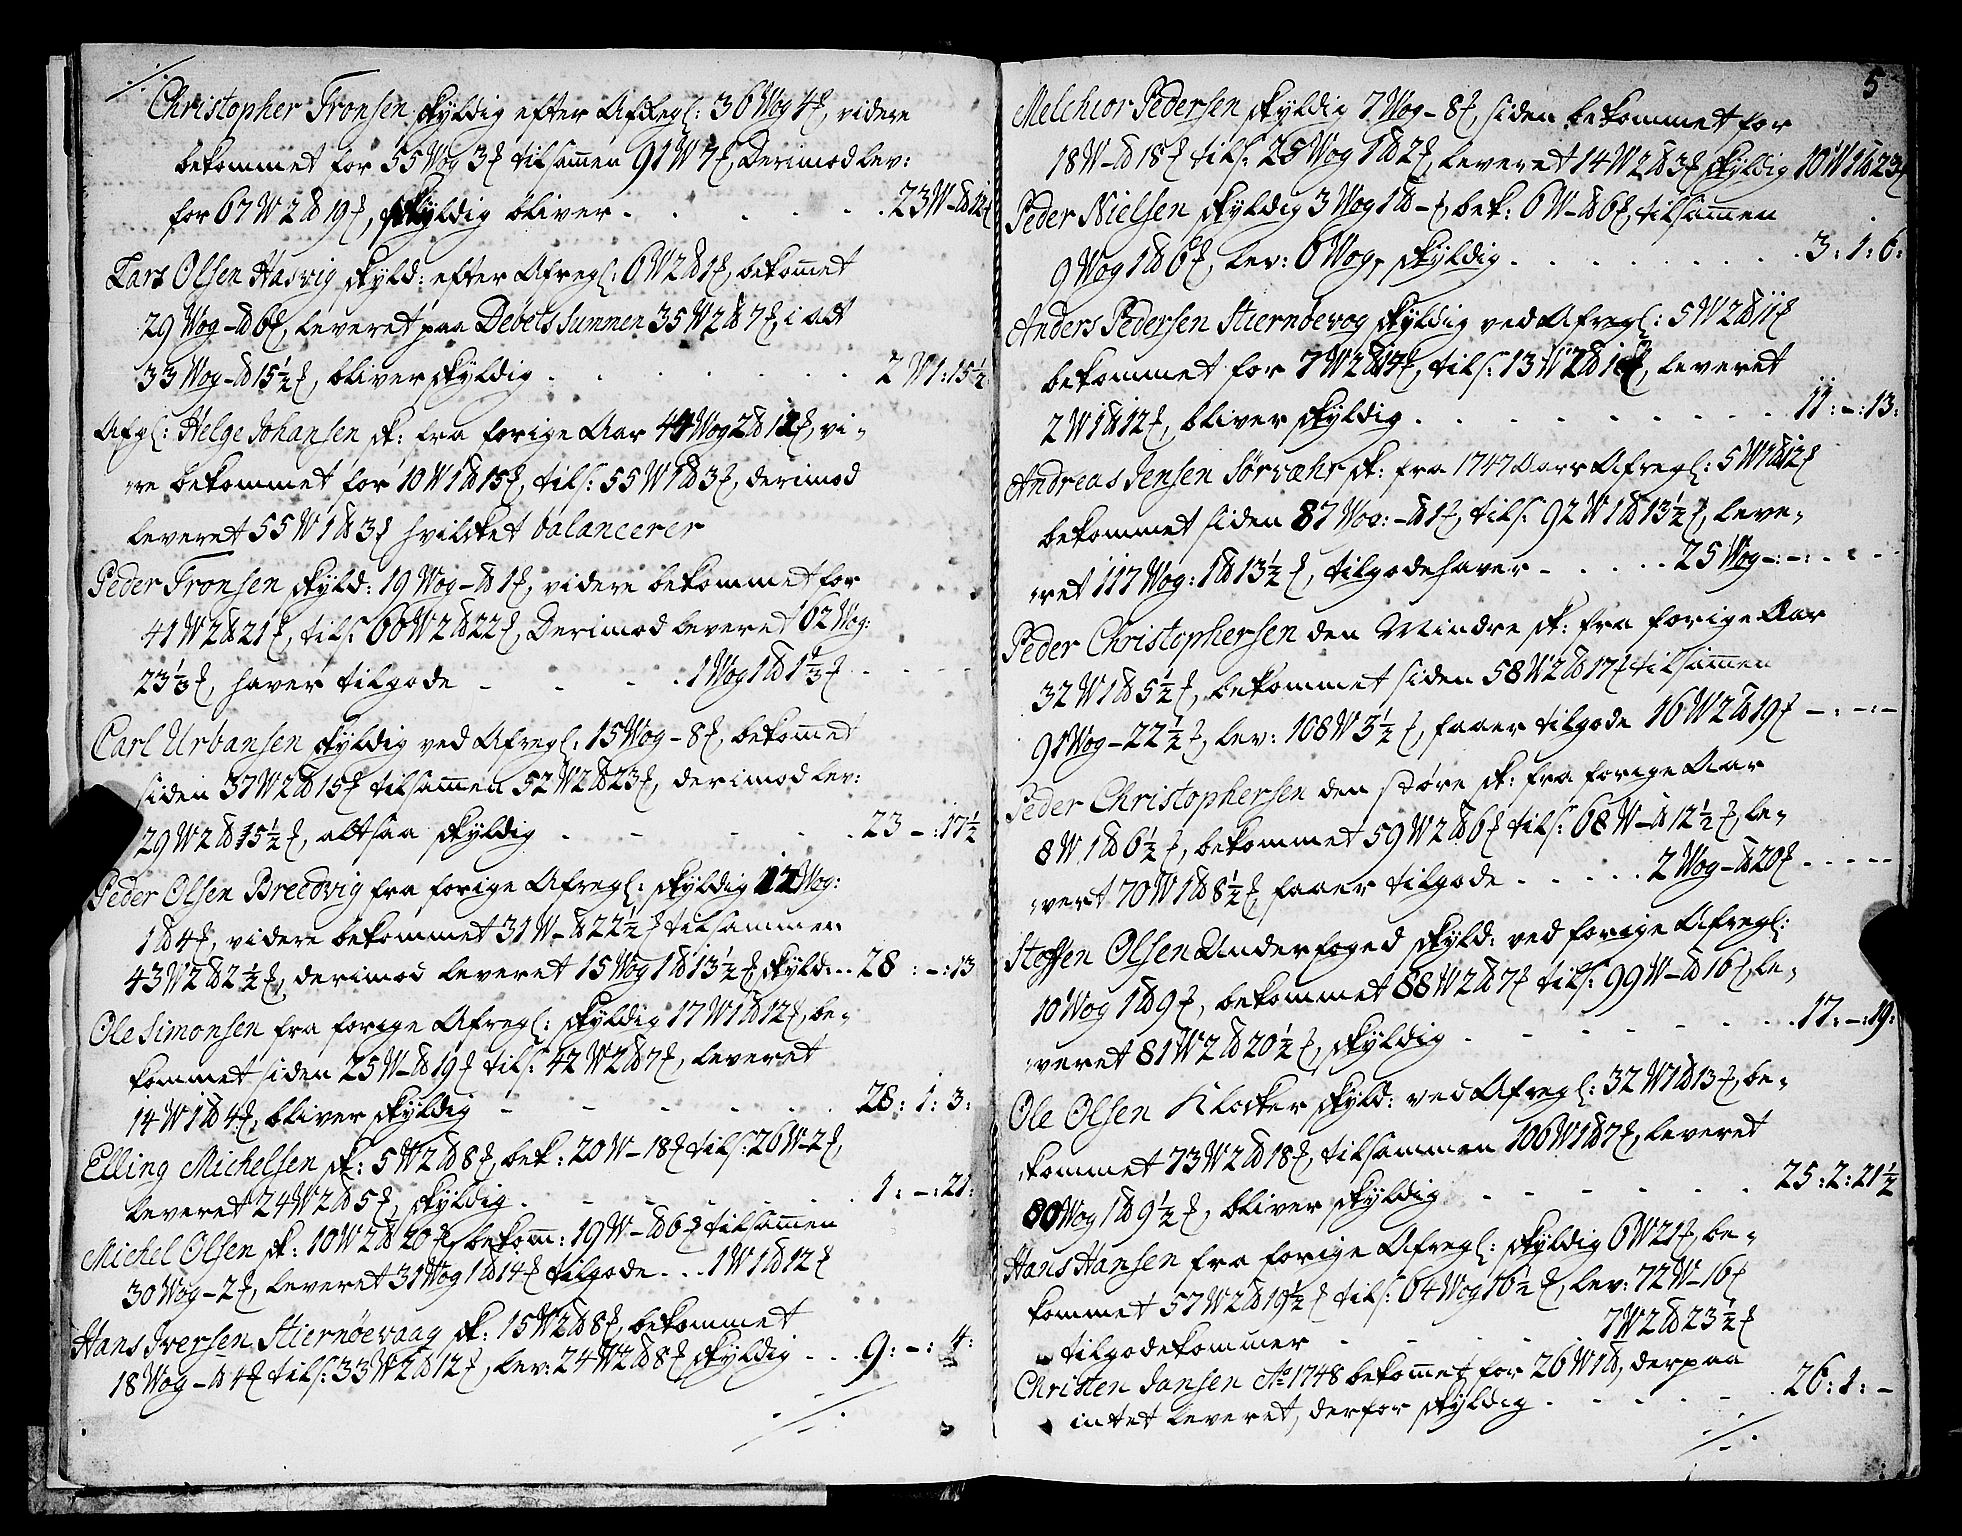 Christopher Tronsen skyldig efter Afregl: 36 Wog 4 ℔, videre
bekommet for 55 Wog 3 ℔ tilsam̄en 91 W 7 ℔, Derimod lev:
for 67 W 2 ℔ 19 ℔, skyldig bliver . . . . . . 23 W - ℔ 12 ℔
Lars Olsen Hasvig skyld: efter Afregl: 6 W 2 ℔ 1 ℔, bekom̄et
29 Wog - ℔ 6 ℔, leveret paa Debets Summen 35 W 2 ℔ 7 ℔, i alt
33 Wog - ℔ 15½ ℔, bliver skyldig . . . . . . 2 W 1 : 15½
Afgl: Helge Johansen sk: fra forige Aar 44 Wog 2 ℔ 12 ℔, vi-
-re bekommet for 10 W 1 ℔ 15 ℔, tils: 55 W 1 ℔ 3 ℔, derimod
leveret 55 W 1 ℔ 3 ℔ hvilcket balancerer
Peder Tronsen skyld: 19 Wog - ℔ 1 ℔, videre bekommet for
41 W 2 ℔ 21 ℔, tils: 60 W 2 ℔ 22 ℔, Derimod leveret 62 Wog:
23⅓ ℔, haver tilgode - - - . 1 Wog 1 ℔ 1⅓ ℔ - - - -
Carl Urbansen skyldig ved Afregl: 15 Wog - 8 ℔, bekom̄et
siden 37 W 2 ℔ 15 ℔ tilsam̄en 52 W 2 ℔ 23 ℔, derimod lev:
29 W 2 ℔ 15½ ℔, altsaa skyldig . - - . . 23 - : 17½
Peder Olsen Bredvig fra forige Afregl: skyldig 12 Wog:
1 ℔ 4 ℔, videre bekommet 31 W - ℔ 22½ ℔ tilsammen
43 W 2 ℔ 2½ ℔, derimod leveret 15 Wog 1 ℔ 13½ ℔ skyld: . . 28 : - : 13
Ole Simonsen fra forige Afregl: skyldig 17 W 1 ℔ 12 ℔, be-
kommet siden 25 W - ℔ 19 ℔ tils: 42 W 2 ℔ 7 ℔, leveret
14 W 1 ℔ 4 ℔, bliver skyldig - - - - . . 28 : 1 : 3 :
Elling Michelsen sk: 5 W 2 ℔ 8 ℔, bek: 20 W - 18 ℔ tils: 26 W - 2 ℔,
leveret 24 W 2 ℔ 5 ℔, skyldig . - - - - . . 1 : - : 21 :
Michel Olsen sk: 10 W 2 ℔ 20 ℔, bekom̄: 19 W - ℔ 6 ℔ tilsam̄en
30 Wog - 2 ℔, leveret 31 Wog 1 ℔ 14 ℔ tilgode . . . 1 W 1 ℔ 12 ℔
Hans Iversen Stiernøevaag sk: 15 W 2 ℔ 8 ℔, bekommet
18 Wog - ℔ 4 ℔ tils: 33 W 2 ℔ 12 ℔, lev: 24 W 2 ℔ 8 ℔ skyldig . . . 9 : - : 4 :
5
Melchior Pedersen skyldig 7 Wog - 8 ℔, siden bekommet for
18 W - ℔ 18 ℔ tils: 25 Wog 1 ℔ 2 ℔, leveret 14 W 2 ℔ 3 ℔ skyldig 10 W 1 ℔ 23 ℔
Peder Nielsen skyldig 3 Wog 1 ℔ - ℔, bek: 6 W - ℔ 6 ℔, tilsam̄en
9 Wog 1 ℔ 6 ℔, lev: 6 Wog, skyldig . . . . . . 3 : 1 : 6 :
Anders Pedersen Stiernøevog skyldig ved Afregl: 5 W 2 ℔ 11 ℔
bekommet for 7 W 2 ℔ 14 ℔, tils: 13 W 2 ℔ 1 ℔, leveret
2 W 1 ℔ 12 ℔, bliver skyldig . . . . . . 11 : - : 13 :
Andreas Jensen Sørvæhr sk: fra 1747 Aars Afregl: 5 W 1 ℔ 12 ℔
bekommet siden 87 Wog: - ℔ 1 ℔, tils: 92 W 1 ℔ 13½ ℔, leve-
-ret 117 Wog: 1 ℔ 13½ ℔, tilgodehaver . . . . 25 Wog - : - : - - -
Peder Christophersen den Mindre sk: fra forige Aar
32 W 1 ℔ 5½ ℔, bekommet siden 58 W 2 ℔ 17 ℔ tilsam̄en
91 Wog - 22½ ℔, lev: 108 W 3½ ℔, faaer tilgode 16 W 2 ℔ 19 ℔ - . - . -
Peder Christophersen den støre sk: fra forige Aar
8 W 1 ℔ 6½ ℔, bekommet 59 W 2 ℔ 6 ℔ tils: 68 W - ℔ 12½ ℔, le-
-vert 70 W 1 ℔ 8½ ℔, faaer tilgode . . . . 2 Wog - ℔ 20 ℔ - - - - -
Steffen Olsen Underfoged skyld: ved forige Afregl:
10 Wog 1 ℔ 9 ℔, bekommet 88 W 2 ℔ 7 ℔ tils: 99 W - ℔ 16 ℔, le-
-veret 81 W 2 ℔ 20½ ℔, skyldig . - - - . . 17 : - : 19 :
Ole Olsen Klocker skyld: ved Afregl: 32 W 1 ℔ 13 ℔, be-
kommet 73 W 2 ℔ 18 ℔, tilsammen 106 W 1 ℔ 7 ℔, leveret
80 Wog 1 ℔ 9½ ℔, bliver skyldig - - - - . 25 : 2 : 21½
Hans Hansen fra forige Afregl: skyldig 6 W 21 ℔, be-
kommet 57 W 2 ℔ 19½ ℔ tils: 64 Wog 16½ ℔, lev: 72 W - 16 ℔
tilgodekommer - - - . 7 W 2 ℔ 23½ ℔
Christen Jansen Ao 1748 bekom̄et for 26 W 1 ℔, derpaa
intet leveret, derfor skyldig . - - - - . 26 : 1 : -